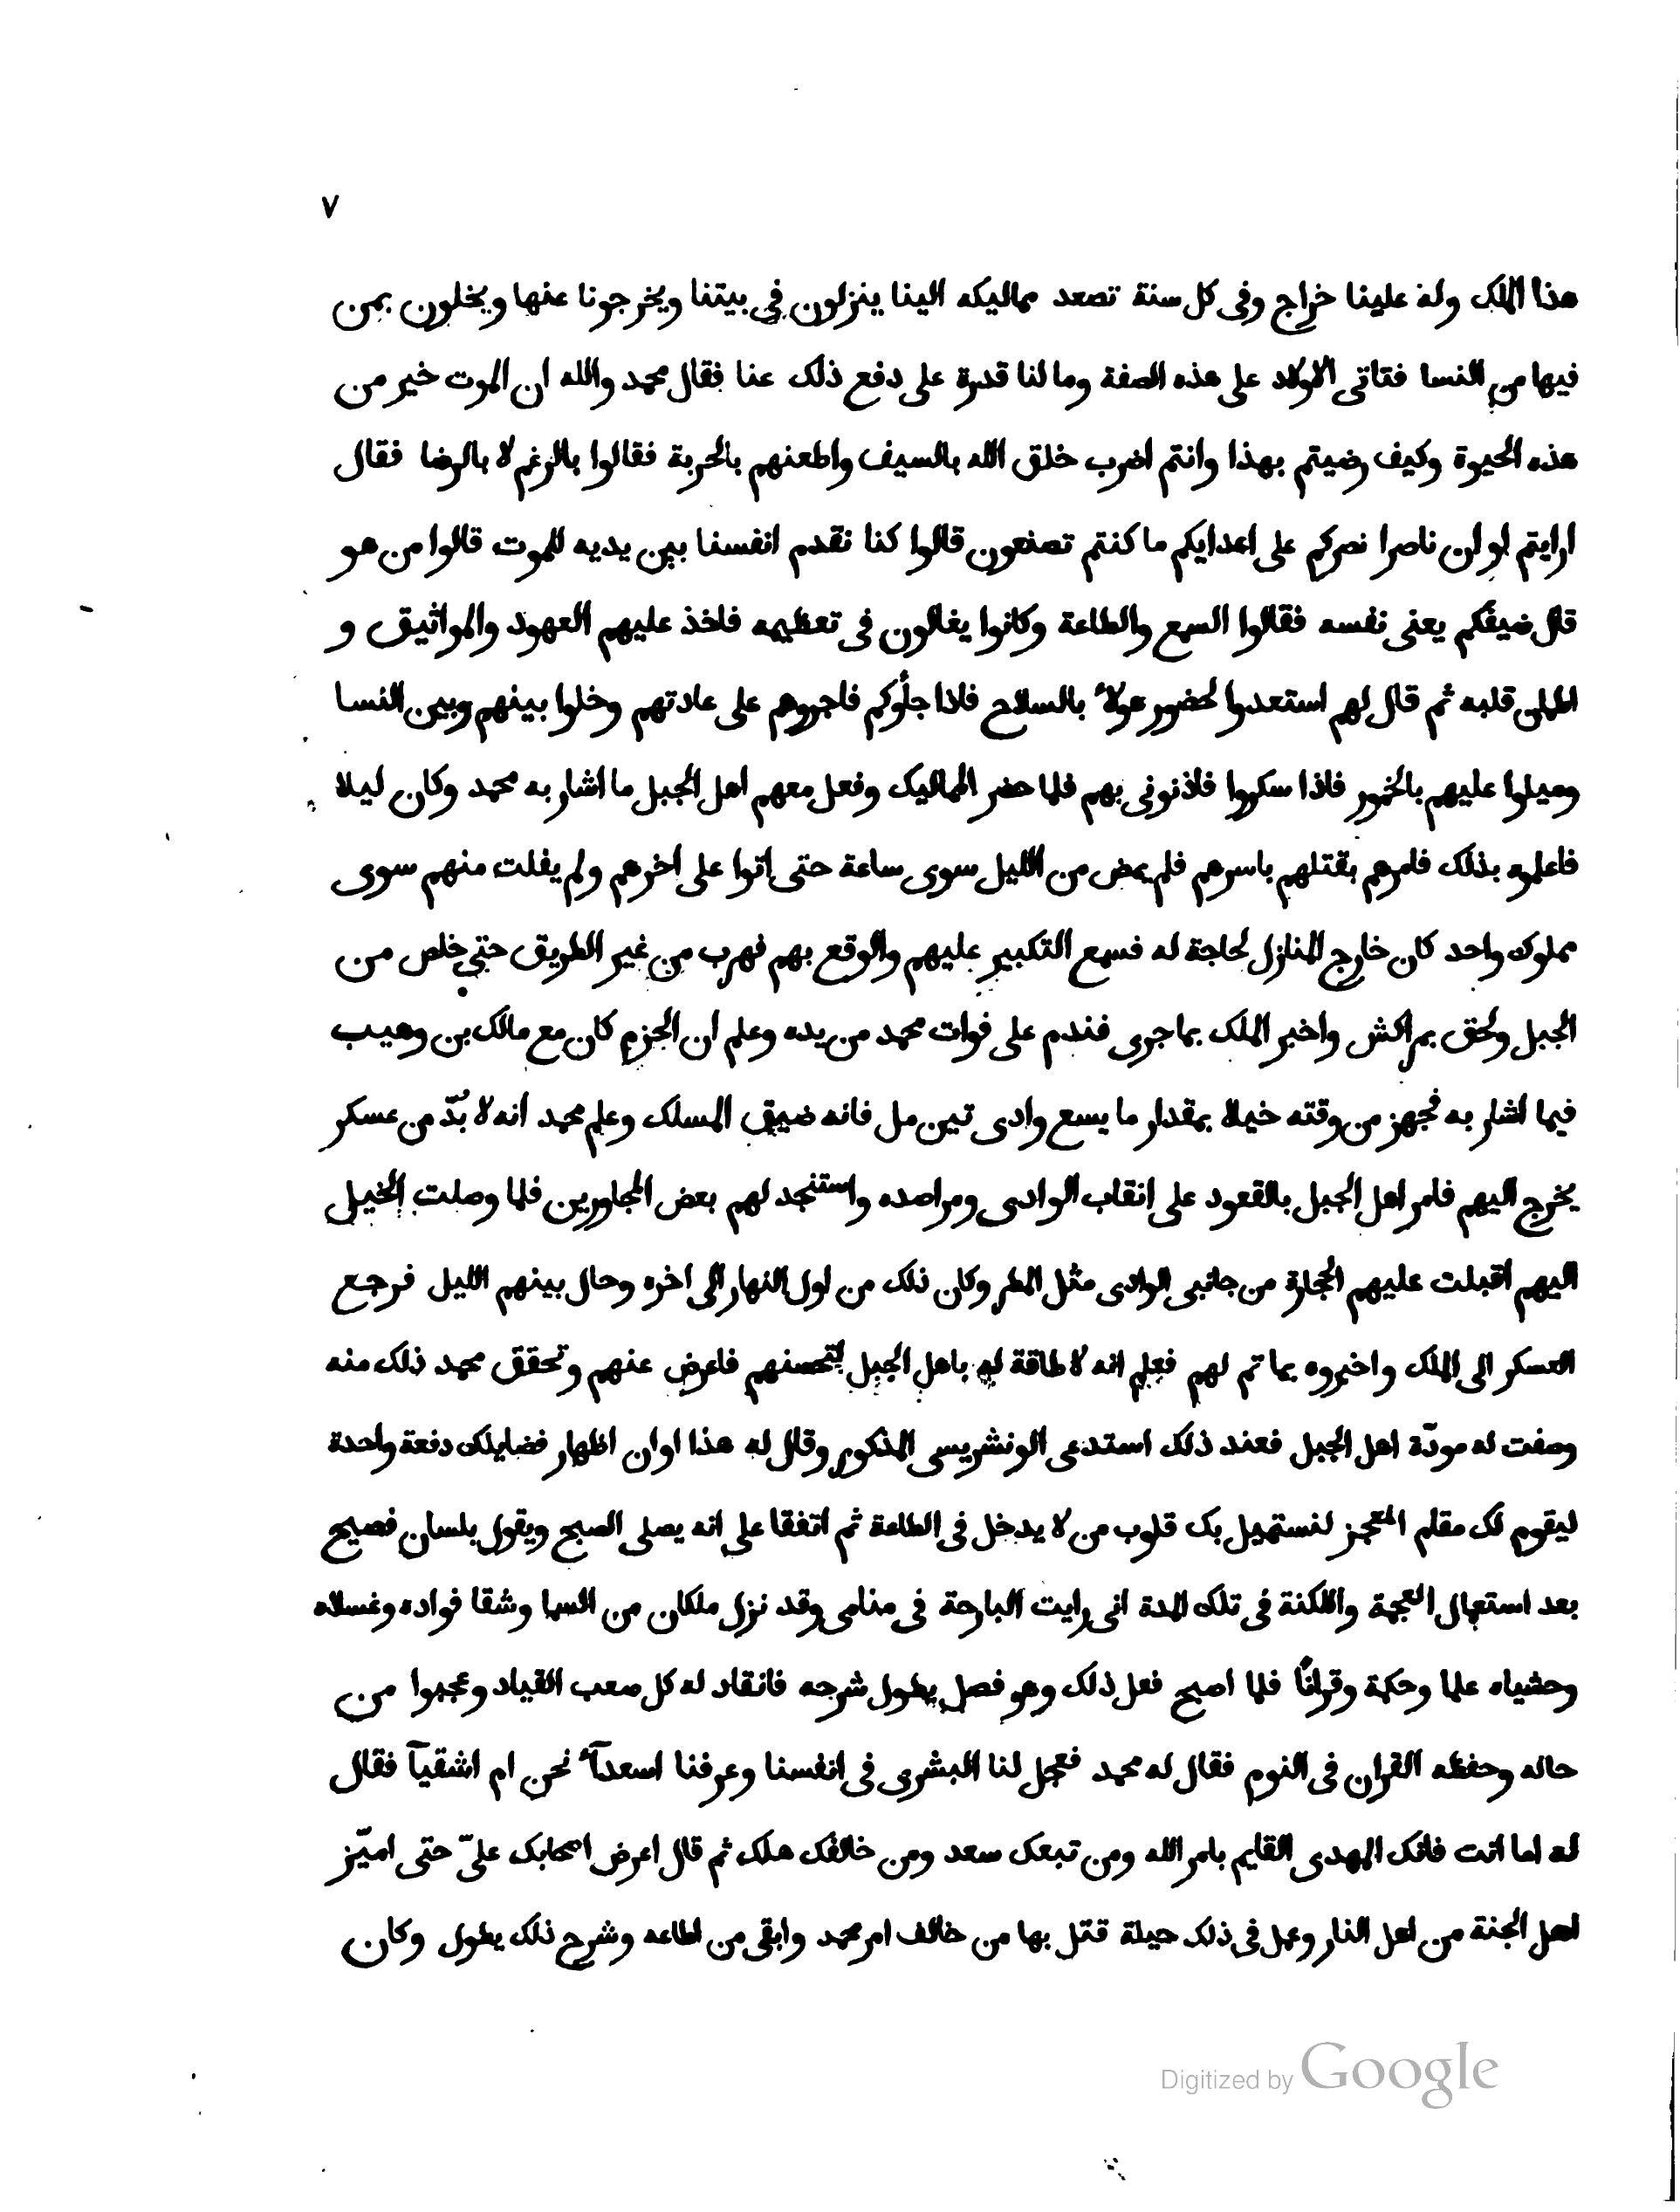 ٧
هذا الملك وله علينا خراج وفى كل سنة تصعد مماليكه الينا ينزلون فى بيتنا ويخرجونا عنها ويخلون بمن
فيها من النسا فتاتى الاولاد على هذه الصفة وما لنا قدرة على دفع ذلك عنا فقال محمد والله ان الموت خير من
هذه الحيوة وكيف رضيتم بهذا وانتم اضرب خلق الله بالسيف واطعنهم بالحربة فقالوا بالرغم لا بالرضا فقال
ارايتم لو ان ناصرا نصركم على اعدايكم ما كنتم تصنعون قالوا كنا نقدم انفسنا بين يديه للموت قالوا من هو
قال ضيفكم يعنى نفسه فقالوا السمع والطاعة وكانوا يغالون فى تعظيمه فاخذ عليهم العهود والمواثيق و
اطمان قلبه ثم قال لهم استعدوا لحضور هولاء بالسلاح فاذا جأوكم فاجروهم على عادتهم وخلوا بينهم وبين النسا
وميلوا عليهم بالخمور فاذا سكروا فاذنونى بهم فلما حضر المماليك وفعل معهم اهل الجبل ما اشار به محمد وكان ليلا
فاعلموه بذلك فامرهم بقتلهم باسرهم فلم يمض من الليل سوى ساعة حتى اتوا على اخرهم ولم يفلت منهم سوى
مملوك واحد كان خارج المنازل لحاجة له فسمع التكبير عليهم والوقع بهم فهرب من غير الطريق حتى خلص من
الجبل ولحق بمراكش واخبر الملك بما جرى فندم على فوات محمد من يده وعلم ان الحزم كان مع مالك بن وهيب
فيما اشار به فجهز من وقته خيلا بمقدار ما يسع وادى تين مل فانه ضيق المسلك وعلم محمد انه لا بُدّ من عسكر
يخرج اليهم فامر اهل الجبل بالقعود على انقاب الوادى ومراصده واستنجد لهم بعض المجاورين فلما وصلت الخيل
اليهم اقبلت عليهم الحجارة من جانبى الوادى مثل المطر وكان ذلك من اول النهار الى اخره وحال بينهم الليل فرجع
العسكر الى الملك واخبروه بما تم لهم فعلم انه لا طاقة له باهل الجبل لتحصنهم فاعرض عنهم وتحقق محمد ذلك منه
وصفت له مودّة اهل الجبل فعند ذلك استدعى الونشريسى المذكور وقال له هذا اوان اظهار فضايلك دفعة واحدة
ليقوم لك مقام المعجز لنستميل بك قلوب من لا يدخل فى الطاعة ثم اتفقا على انه يصلى الصبح ويقول بلسان فصيح
بعد استعمال العجمة واللكنة فى تلك المدة انى رايت البارحة فى منامى وقد نزل ملكان من السما وشقا فواده وغسلاه
وحشياه علما وحكمة وقرانًا فلما اصبح فعل ذلك وهو فصل يطول شرحه فانقاد له كل صعب القياد وعجبوا من
حاله وحفظه القران فى النوم فقال له محمد فعجل لنا البشرى فى انفسنا وعرفنا اسعدآء نحن ام اشقيآ فقال
له اما انت فانك المهدى القايم بامر الله ومن تبعك سعد ومن خالفك هلك ثم قال اعرض اصحابك علىّ حتى اميّز
اهل الجنة من اهل النار وعمل فى ذلك حيلة قتل بها من خالف امر محمد وابقى من اطاعه وشرح ذلك يطول وكان
Digitized by Google